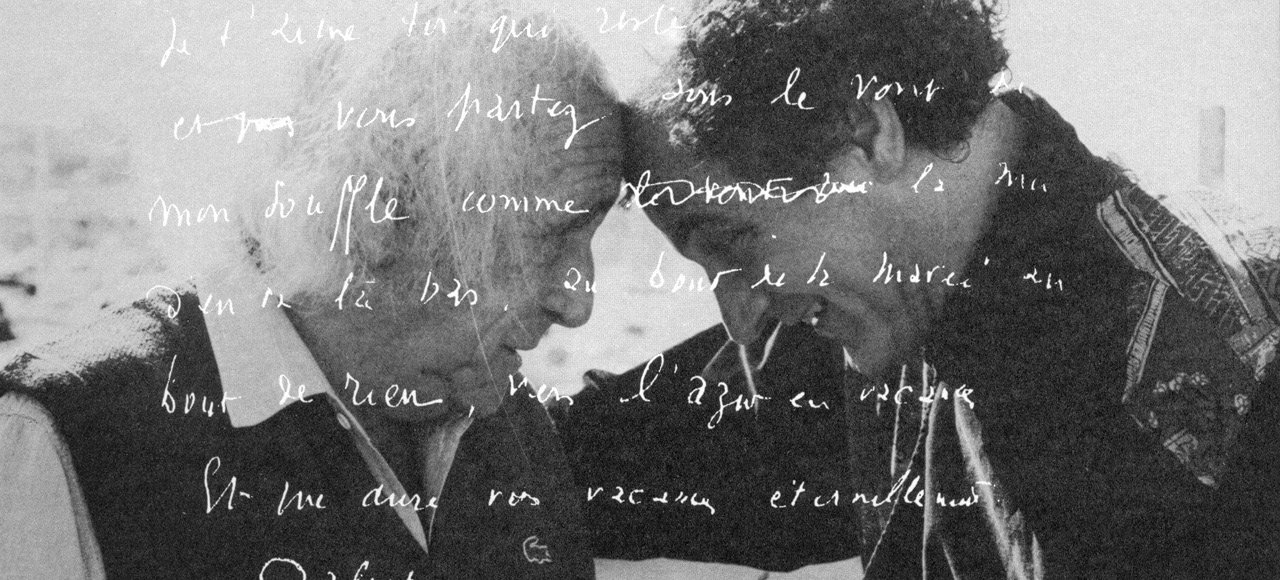 Je t'aime toi qui reste
et vous partez dans le vent de
mon souffle comme la mu
d'en ce là bas, au bout de la marée au
bout de rien, vers l'azur en vacances
Et que dure vos vacances éternellement